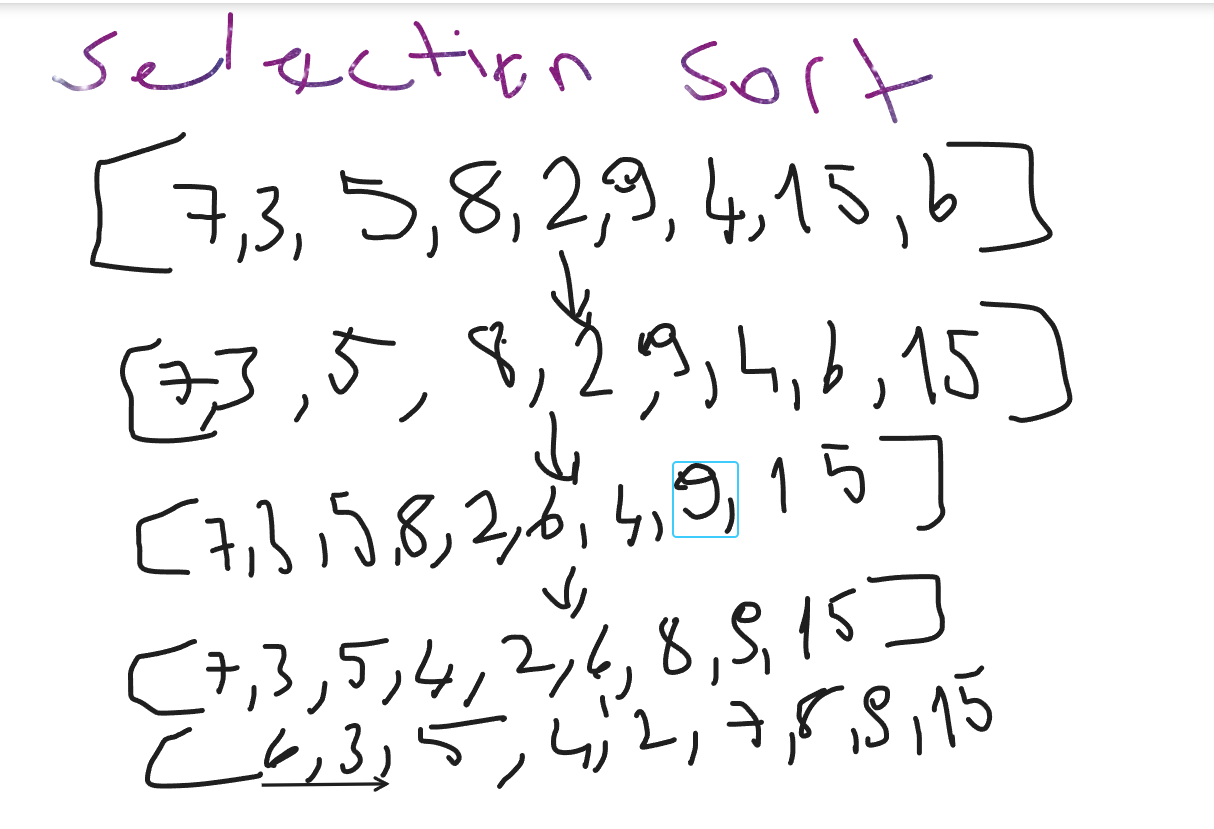 selection sort
[7,3, 5,8,2,9,4,15,6]
[7,3,5,8,2,9,4,6,15]
[7,3,5,8,2,6,4,9,15]
[7,3,5,4,2,6,8,9,15]
[6,3,5,4,2,7,8,9,15